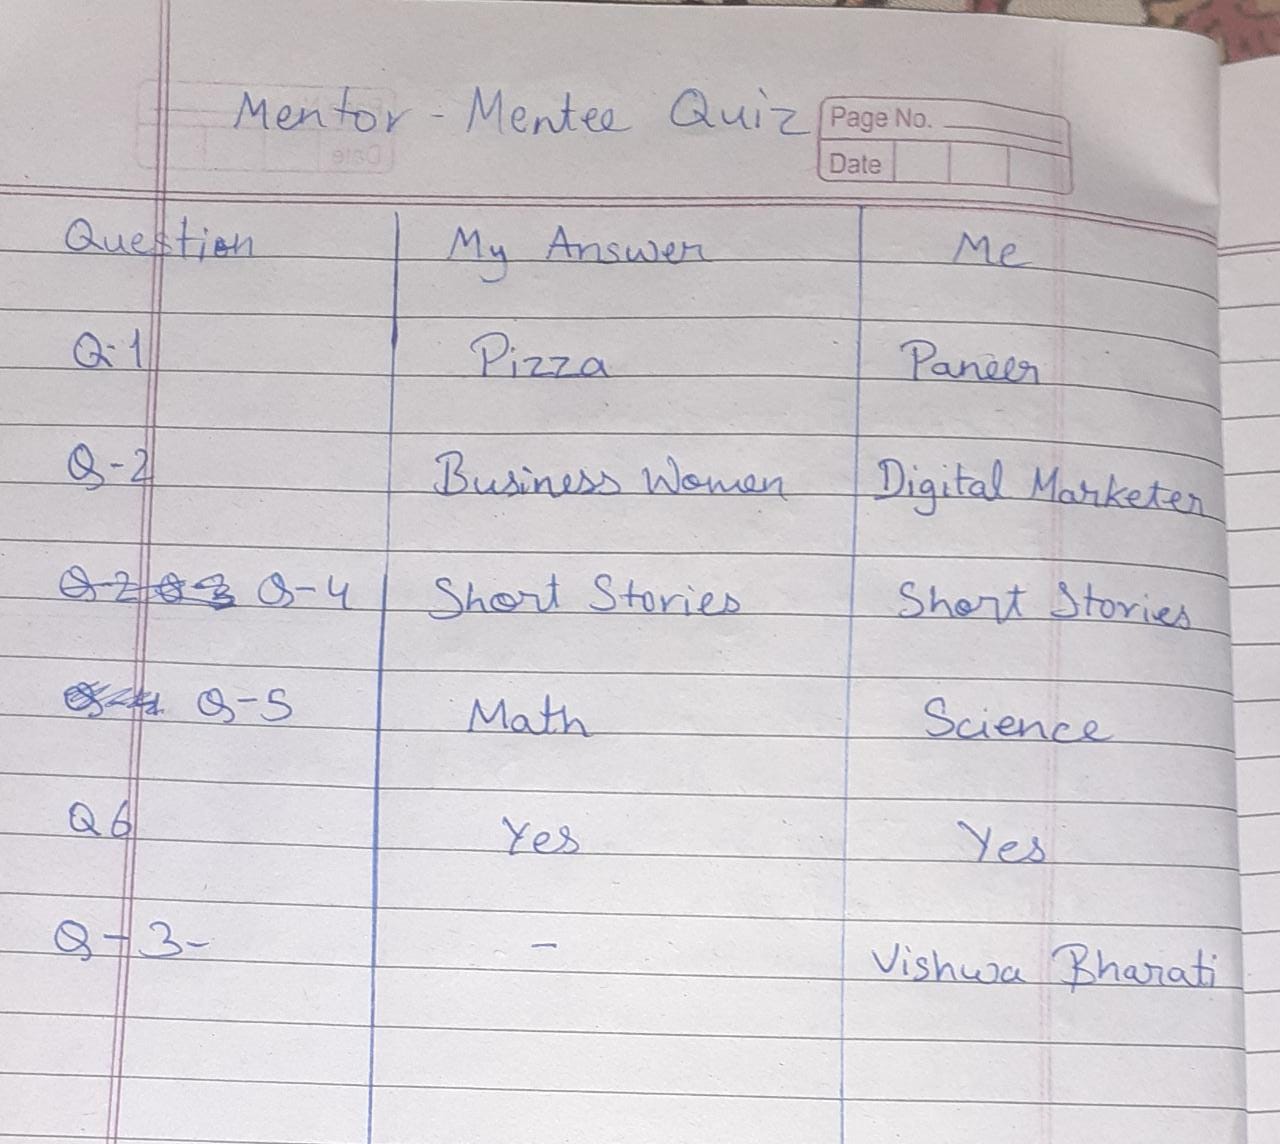 Mentor - Mentee Quiz
Page No.
Date
Question My Answer Me
Q-1 Pizza Paneer
Q-2 Business Women Digital Marketer
Q-4 Short Stories Short Stories
Q-5 Math Science
Q6 Yes Yes
Q-3- - Vishwa Bharati